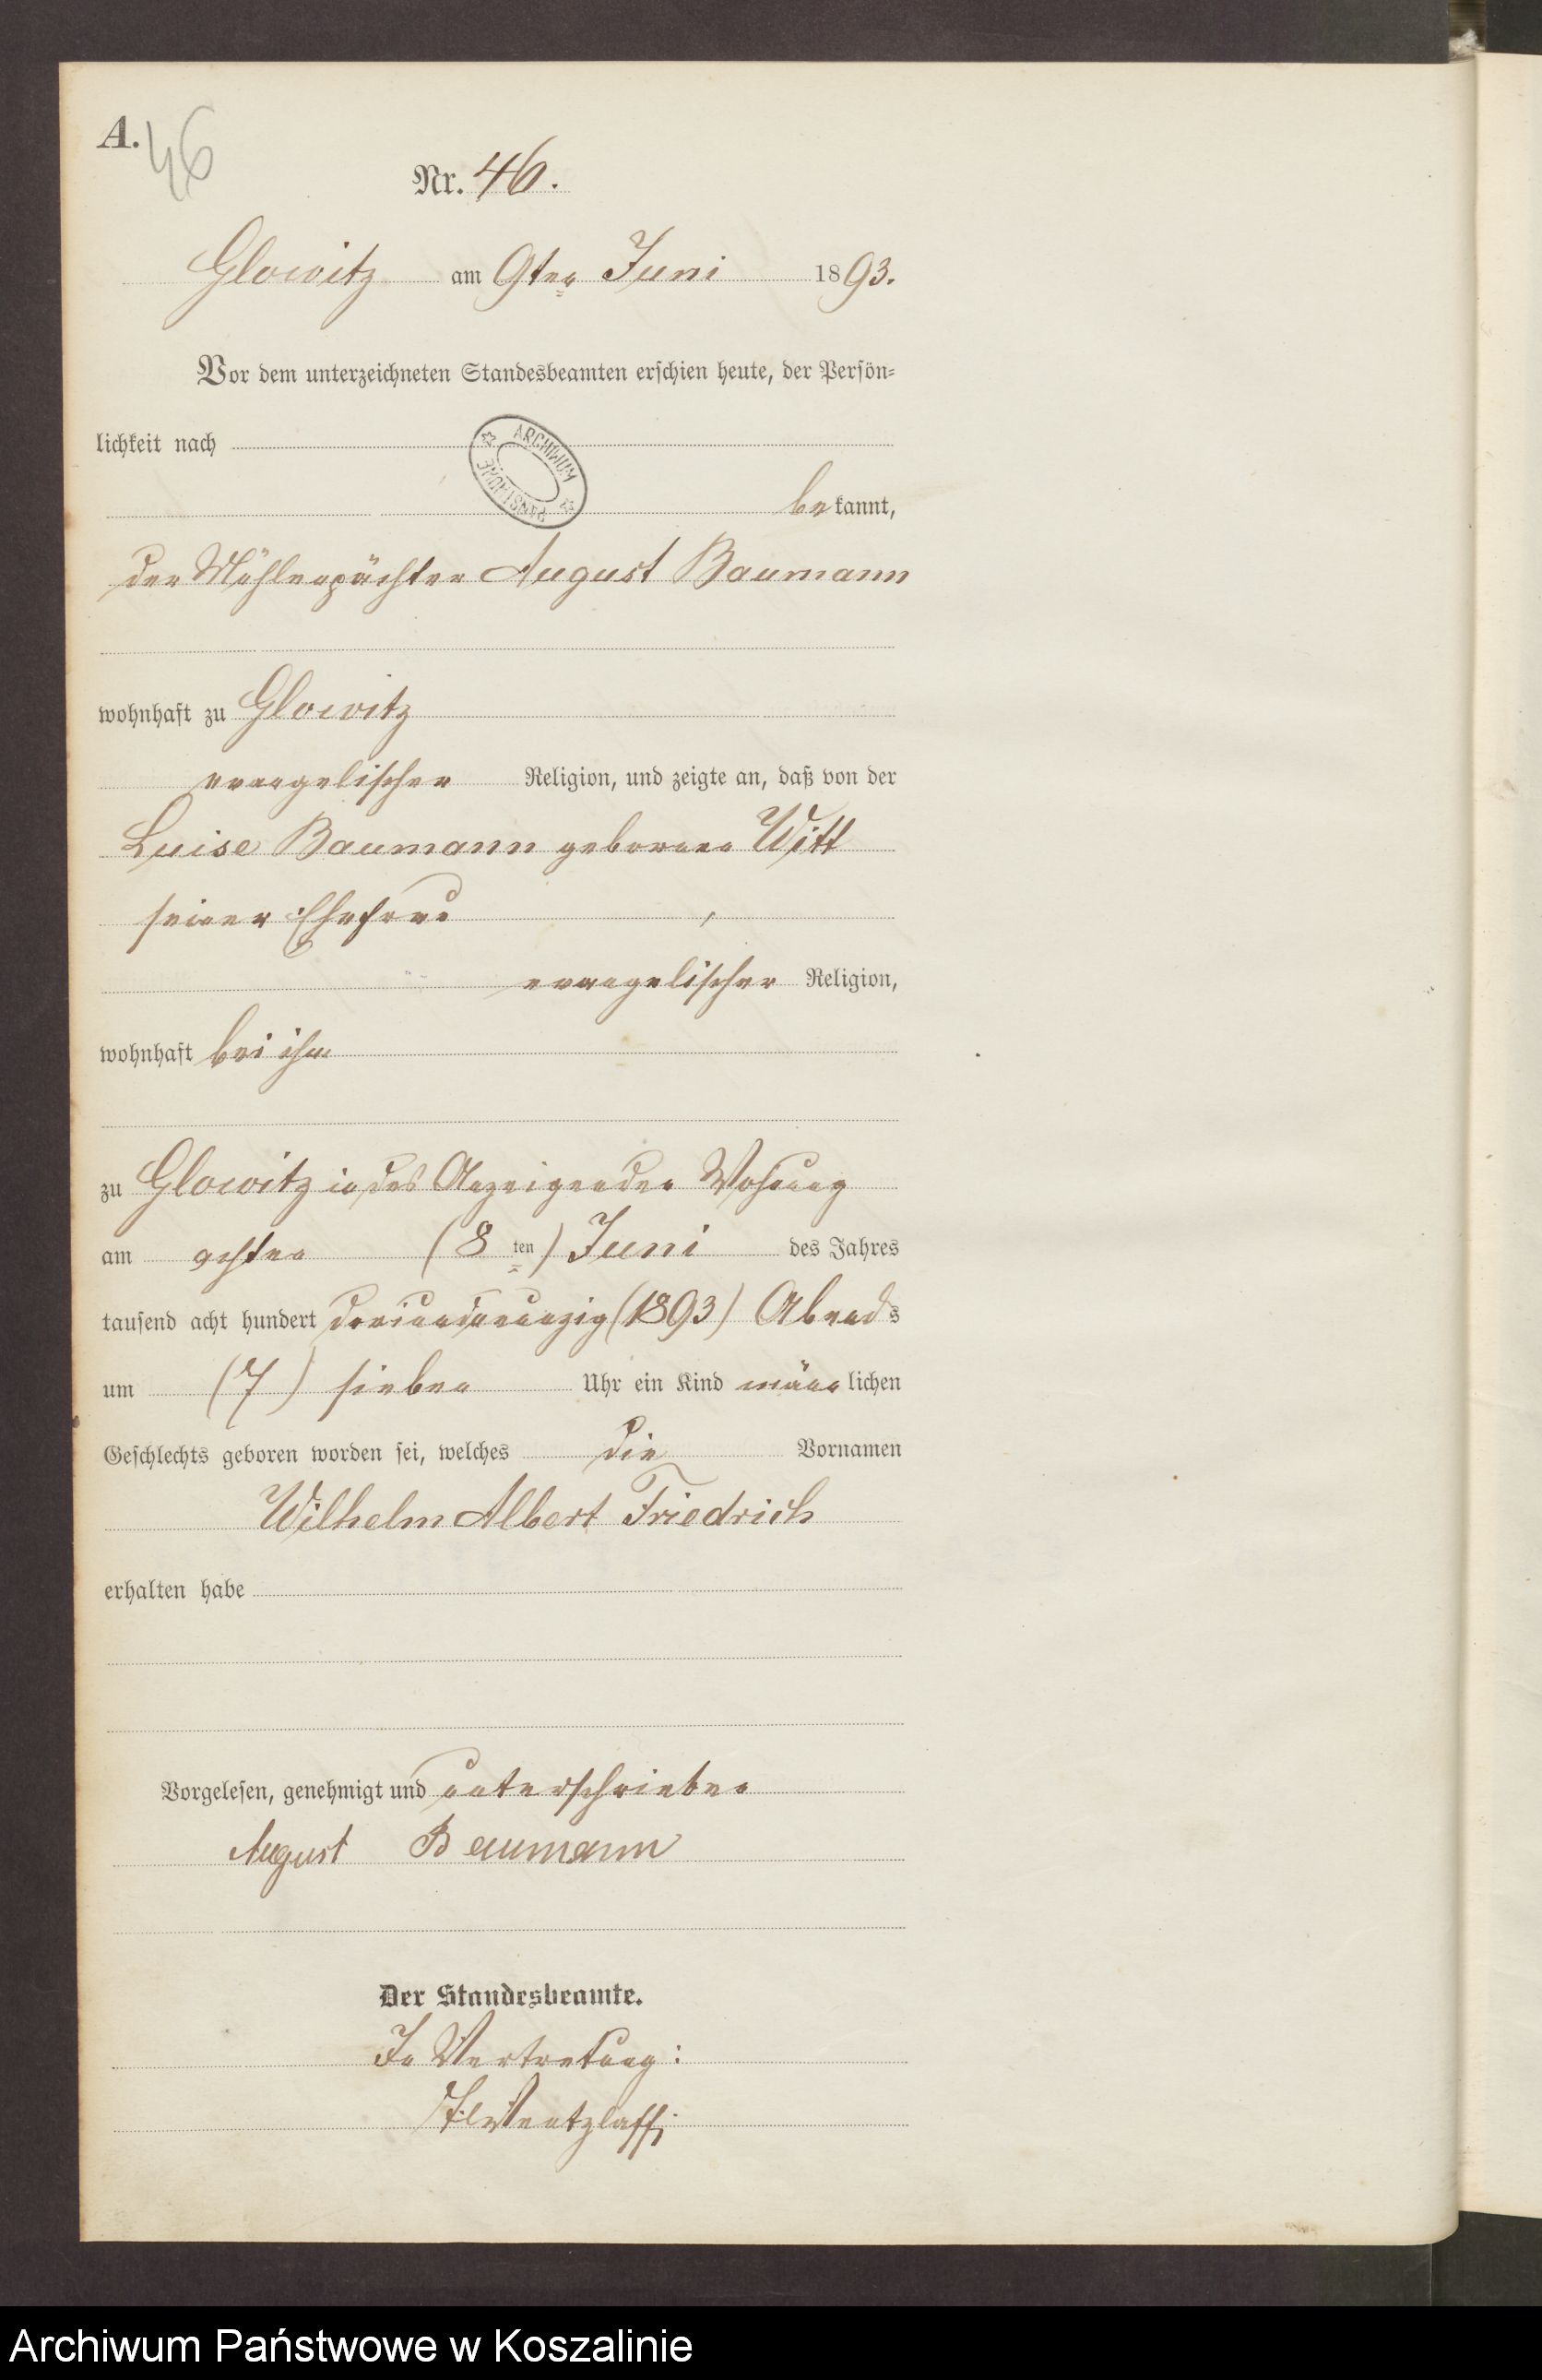 A.
46
Nr. 46.
Glowitz am 9ten Juni 1893.
Vor dem unterzeichneten Standesbeamten erschien heute, der Persön=
lichkeit nach
ARCHIWUM PAŃSTWOWE
bekannt,
der Mühlenpächter August Baumann
wohnhaft zu Glowitz
evangelischer Religion, und zeigte an, daß von der
Luise Baumann geborene Witt
seiner Ehefrau,
evangelischer Religion,
wohnhaft bei ihm
zu Glowitz in des Anzeigenden Wohnung
am achten (8 ten) Juni des Jahres
tausend acht hundert dreiundneunzig (1893) Abends
um (7) sieben Uhr ein Kind männlichen
Geschlechts geboren worden sei, welches die Vornamen
Wilhelm Albert Friedrich
erhalten habe
Vorgelesen, genehmigt und unterschrieben
August Baumann
Der Standesbeamte.
In Vertretung:
Wentzlaff
Archiwum Państwowe w Koszalinie